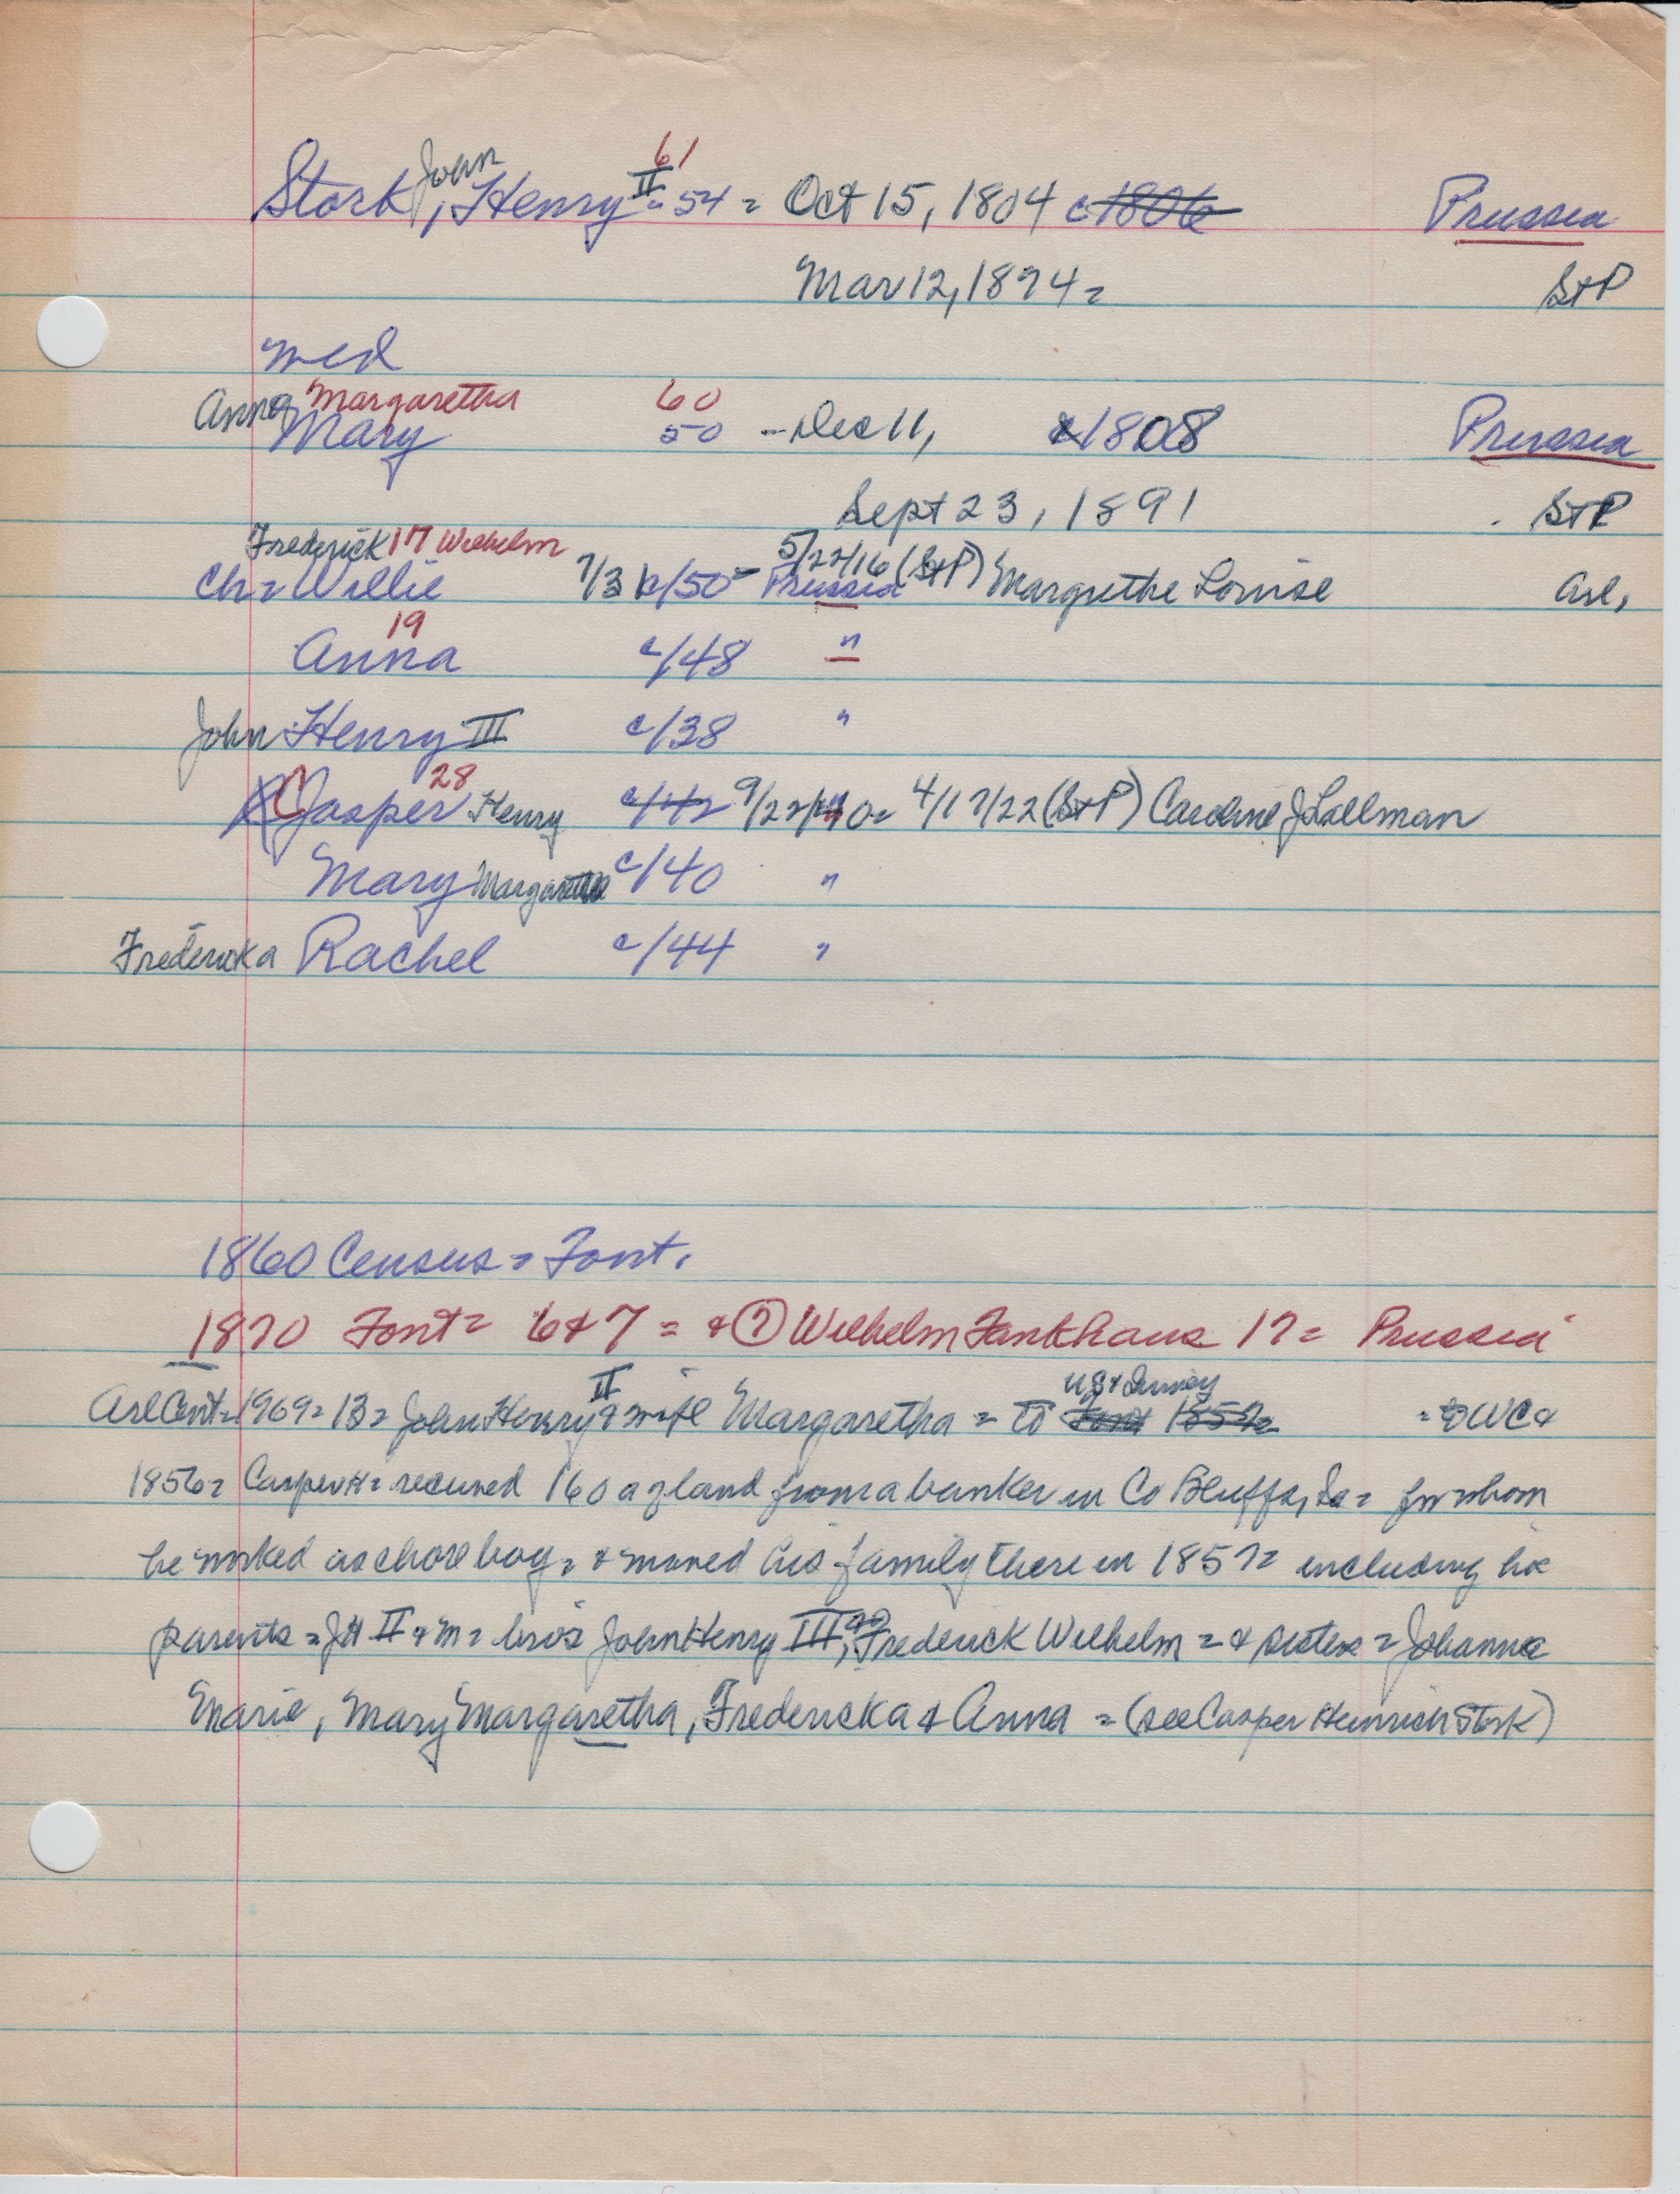 John 61
Stork, Henry II - 54 = Oct 15, 1804 c1806 Prussia
Mar 12, 1894 = St P
med
Anna Margaretha 60
Mary 50 -- Dec 11, 1808 Prussia
Sept 23, 1891 St P
Frederick 17 Wilhelm 5/22/16 (St P)
Ch = Willie 7/3 /50 - Prussia Margrethe Louise Arl,
19
Anna c/48 "
John Henry III c/38 "
28
C Jasper Henry c/42 9/22/40 = 4/17/22 (St P) Caroline J Lallman
Mary Margaretha c/40 "
Fredericka Rachel c/44 "
1860 Census = Font.
1870 Font = 6 & 7 = & (7) Wilhelm Fankhaus 17 = Prussia
II US &
Arl Cent = 1969 = 13 = John Henry & wife Margaretha = to Font 1857 = = to WC &
1856 = Casper H = received 160 a of land from a banker in Co Bluffs, Ia = for whom
he worked as chore boy = & moved his family there in 1857 = including his
parents = JH II & M = bros John Henry III, Frederick Wilhelm = & sisters = Johanna
Marie, Mary Margaretha, Fredericka & Anna = (see Casper Heinrich Stork)